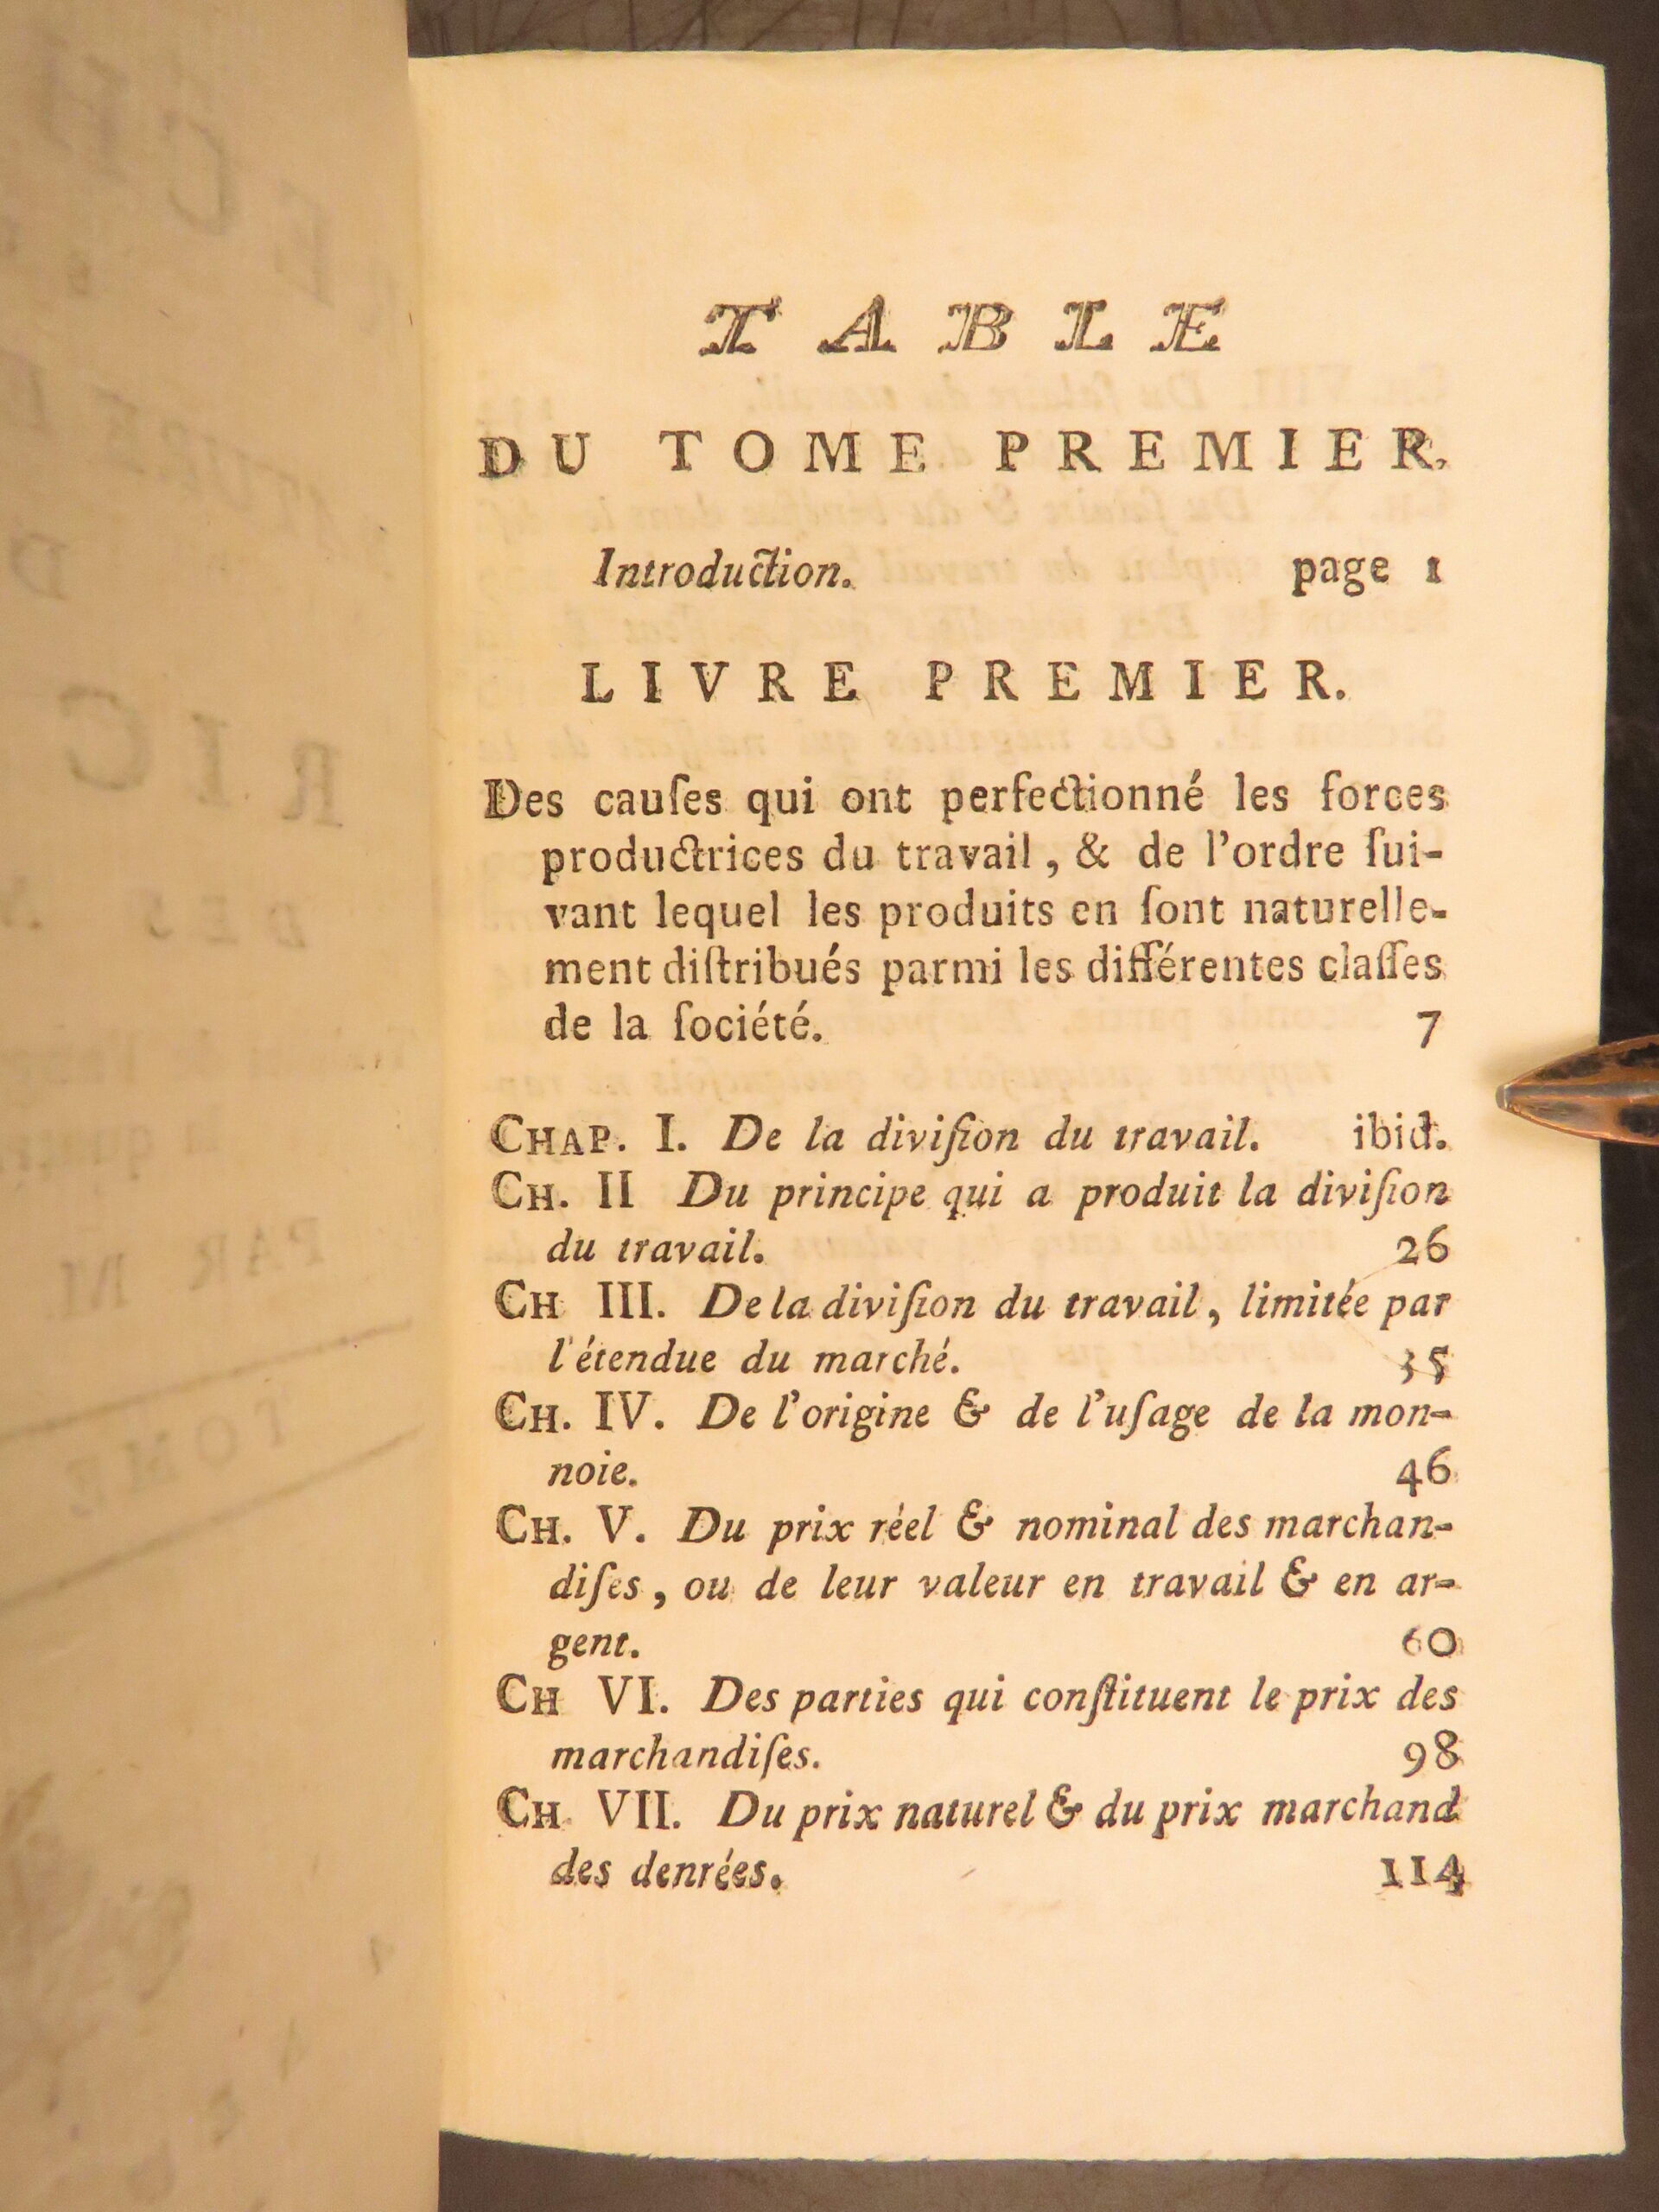 TABLE
DU TOME PREMIER.
Introduction. page 1
LIVRE PREMIER.
Des cauſes qui ont perfectionné les forces
productrices du travail, & de l'ordre ſui-
vant lequel les produits en ſont naturelle-
ment diſtribués parmi les différentes claſſes
de la ſociété. 7
CHAP. I. De la diviſion du travail. ibid.
CH. II Du principe qui a produit la diviſion
du travail. 26
CH III. De la diviſion du travail, limitée par
l'étendue du marché. 35
CH. IV. De l'origine & de l'uſage de la mon-
noie. 46
CH. V. Du prix réel & nominal des marchan-
diſes, ou de leur valeur en travail & en ar-
gent. 60
CH VI. Des parties qui conſtituent le prix des
marchandiſes. 98
CH VII. Du prix naturel & du prix marchand
des denrées. 114